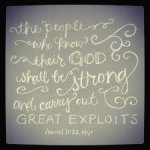 the people
who know
their GOD
shall be strong
and carry out
GREAT EXPLOITS
daniel 11:32, nkjv